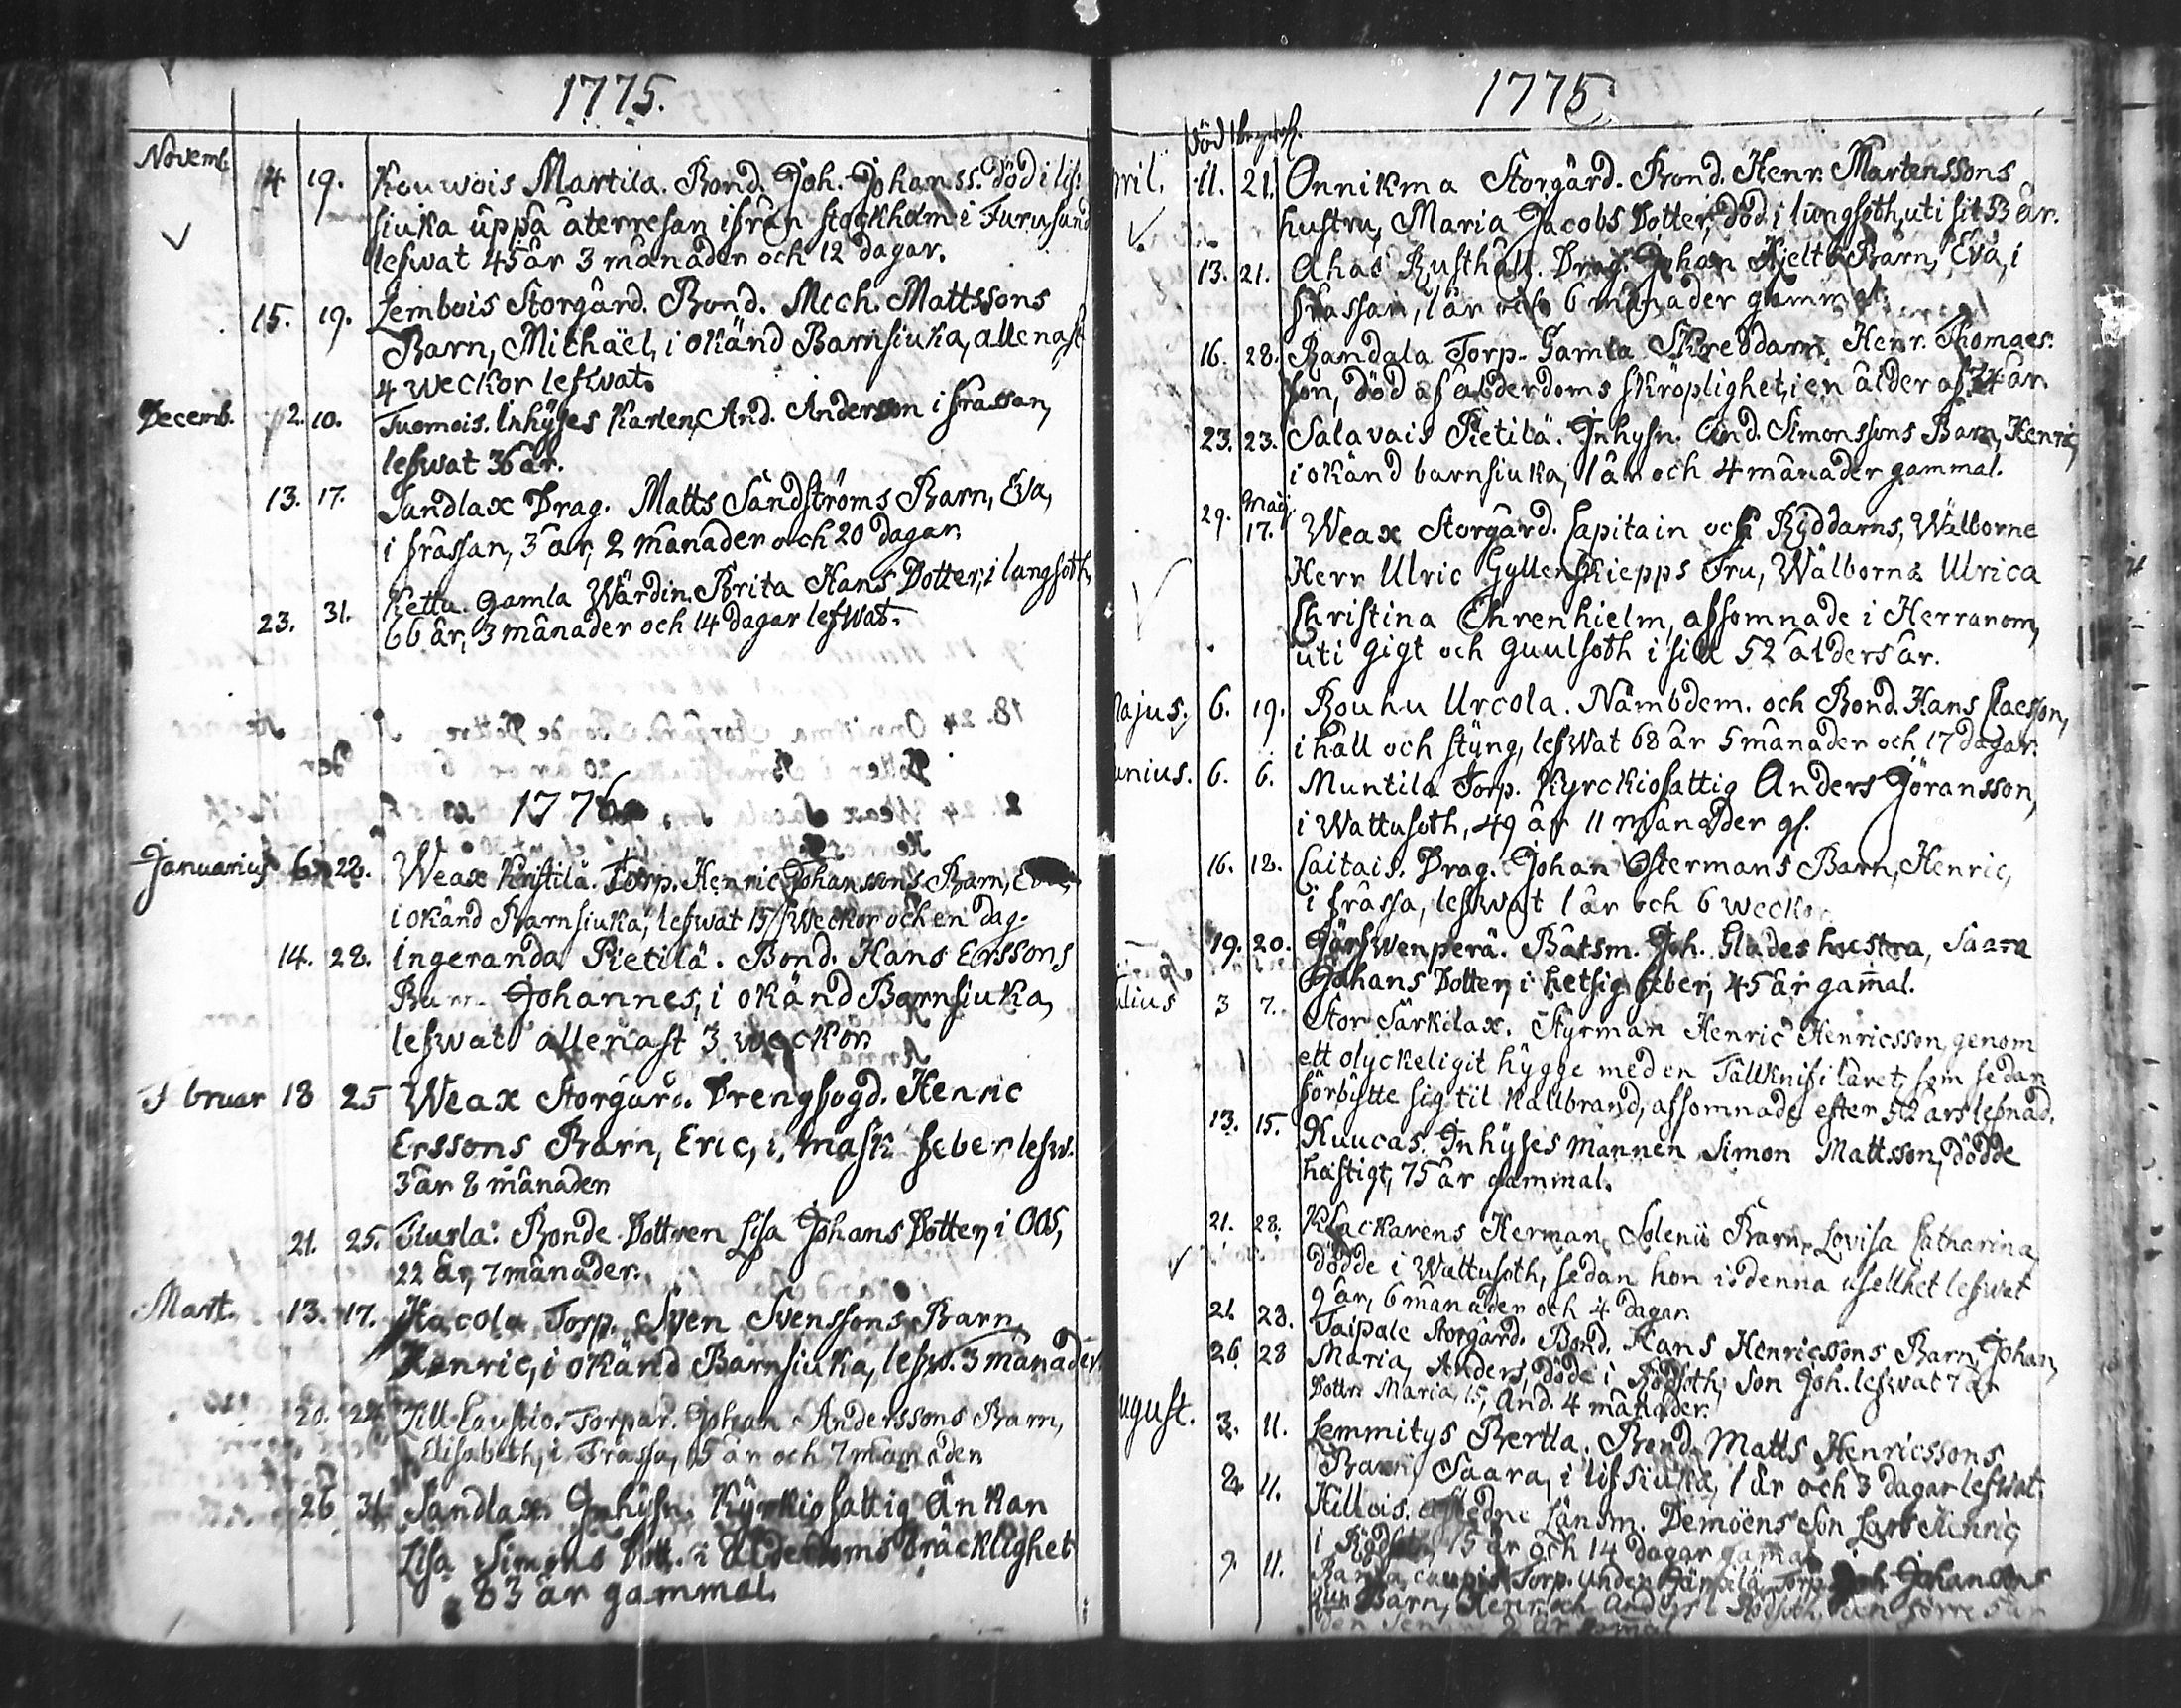 1775.
Novemb. 14 19. Kouwois Martila. Bond. Joh. Johanss. död i lif
siuka uppå återresan ifrån stockholm i Furusund
lefwat 45 år 3 månader och 12 dagar.
15. 19. Lembois Storgård. Bond. Mich. Mattssons
Barn, Michäel, i okänd Barnsiuka, allenast
4 weckor lefwat.
Decemb. 2. 10. Tuomois. Inhyses Karlen, And. Andersson i frassan,
lefwat 36 år.
13. 17. Sandlax Drag. Matts Sandströms Barn, Eva,
i frassan, 3 år, 2 månader och 20 dagar.
23. 31. Kettu. gamla Wärdin. Brita Hans Dotter, i lungsoth,
66 år, 3 månader och 14 dagar lefwat.
1776
Januarius 6 22. Weax Knstilä. Torp. Henric Johanssons Barn,
i okänd Barnsiuka, lefwat 15 Weckor och en dag.
14. 28. Ingeranda Pietilä. Bond. Hans Erssons
Barn Johannes, i okänd Barnsiuka,
lefwat allenast 3 weckor
Februar 18 25 Weax Storgård. Drengfogd. Henric
Erssons Barn, Eric, i mask feber lefw.
3 år 8 månader
21. 25. Tiusla: Bonde Dottren Lisa Johans Dotter, i OOS,
22 år, 7 månader.
Mart. 13. 17. Hacola Torp. Sven Svenssons Barn
Henric, i okänd Barnsiuka, lefw. 3 månader.
20. 24. Till Laustio. Torpar. Johan Anderssons Barn,
Elisabeth, i Frassa, 5 år och 7 månader
26 31 Sandlax Inhysn. Kyrkiofattig Änkan
Lisa Simons Dott. i ålderdoms bräcklighet
83 år gammal.
1775
Död begrof.
pril. 11. 21. Onnikma Storgård. Bond. Henr. Martenssons
hustru, Maria Jacobs Dotter, död i lungsoth, uti sit 53 år.
13. 21. Ahas Rusthåll. Drag. Johan Hjelts Barn, Eva, i
frassan, 1 år och 6 månader gammal.
16. 28. Randala Torp. Gamla Skreddarn. Henr. Thomaes.
son, död af ålderdoms skröplighet, i en ålder af 74 år
23. 23. Salavais Pietilä. Inhysn. And. Simonssons Barn, Henric
i okänd barnsiuka, 1 år och 4 månader gammal.
29. Maij 17. Weax Storgård. Capitain och Ryddarns, Wälborne
Herr Ulric Gyllenskiepps Fru, Wälborna Ulrica
Christina Ehrenhielm, afsomnade i Herranom,
uti gigt och guulsoth i sill 52 ålders år.
Majus. 6. 19. Rouhu Urcola. Nämbdem. och Bond. Hans Claesson,
i håll och styng, lefwat 68 år 5 månader och 17 dagar.
unius. 6. 6. Muntila Torp. Kyrckiofattig Anders Göransson,
i Wattusoth, 49 år 11 månader gl.
16. 18. Caitais. Drag. Johan Östermans Barn, Henric,
i frassa, lefwat 1 år och 6 weckor
19. 20. Järfwenperä. Båtsm. Joh. Glades hustru, Saara
Johans Dotter, i hetsig feber, 45 år gamal.
ulius 3 7. Stor Särkilax. Styrman Henric Henricsson, genom
ett olyckeligit hygge med en Tällknif i låret, som sedan
förbytte sig til kallbrand, afsomnade efter 52 års lefnad.
13. 15. Kuucas. Inhyses mannen Simon Mattsson, dödde
hastigt, 75 år gammal.
21. 28. Klackarens Herman Solenii Barn, Lovisa Catharina
dödde i Wattusoth, sedan hon i denna uselhet lefwat
9 år, 6 månader och 4 dagar
21. 28. Taipale Storgård. Bond. Hans Henricssons Barn, Johan,
26 28 Maria, Anders, döde i Rödsoth, Son Joh. lefwat 7 år
Dottr. Maria, 15, And. 4 månader.
ugust. 3. 11. Lemmitys Bertla. Bond. Matts Henricssons
Barn, Saara, i lifsiuka, 1 år och 3 dagar lefwat.
2. 11. Killois. Länsm. Demoens Son Lars Henric,
i Rödsoth, 15 år och 14 dagar gamal
7 11. Torp. under Torp. Joh. Johanssons
Barn, Henr. och Anders i Rödsoth, den förre 5 år
den sen 2 år gamal